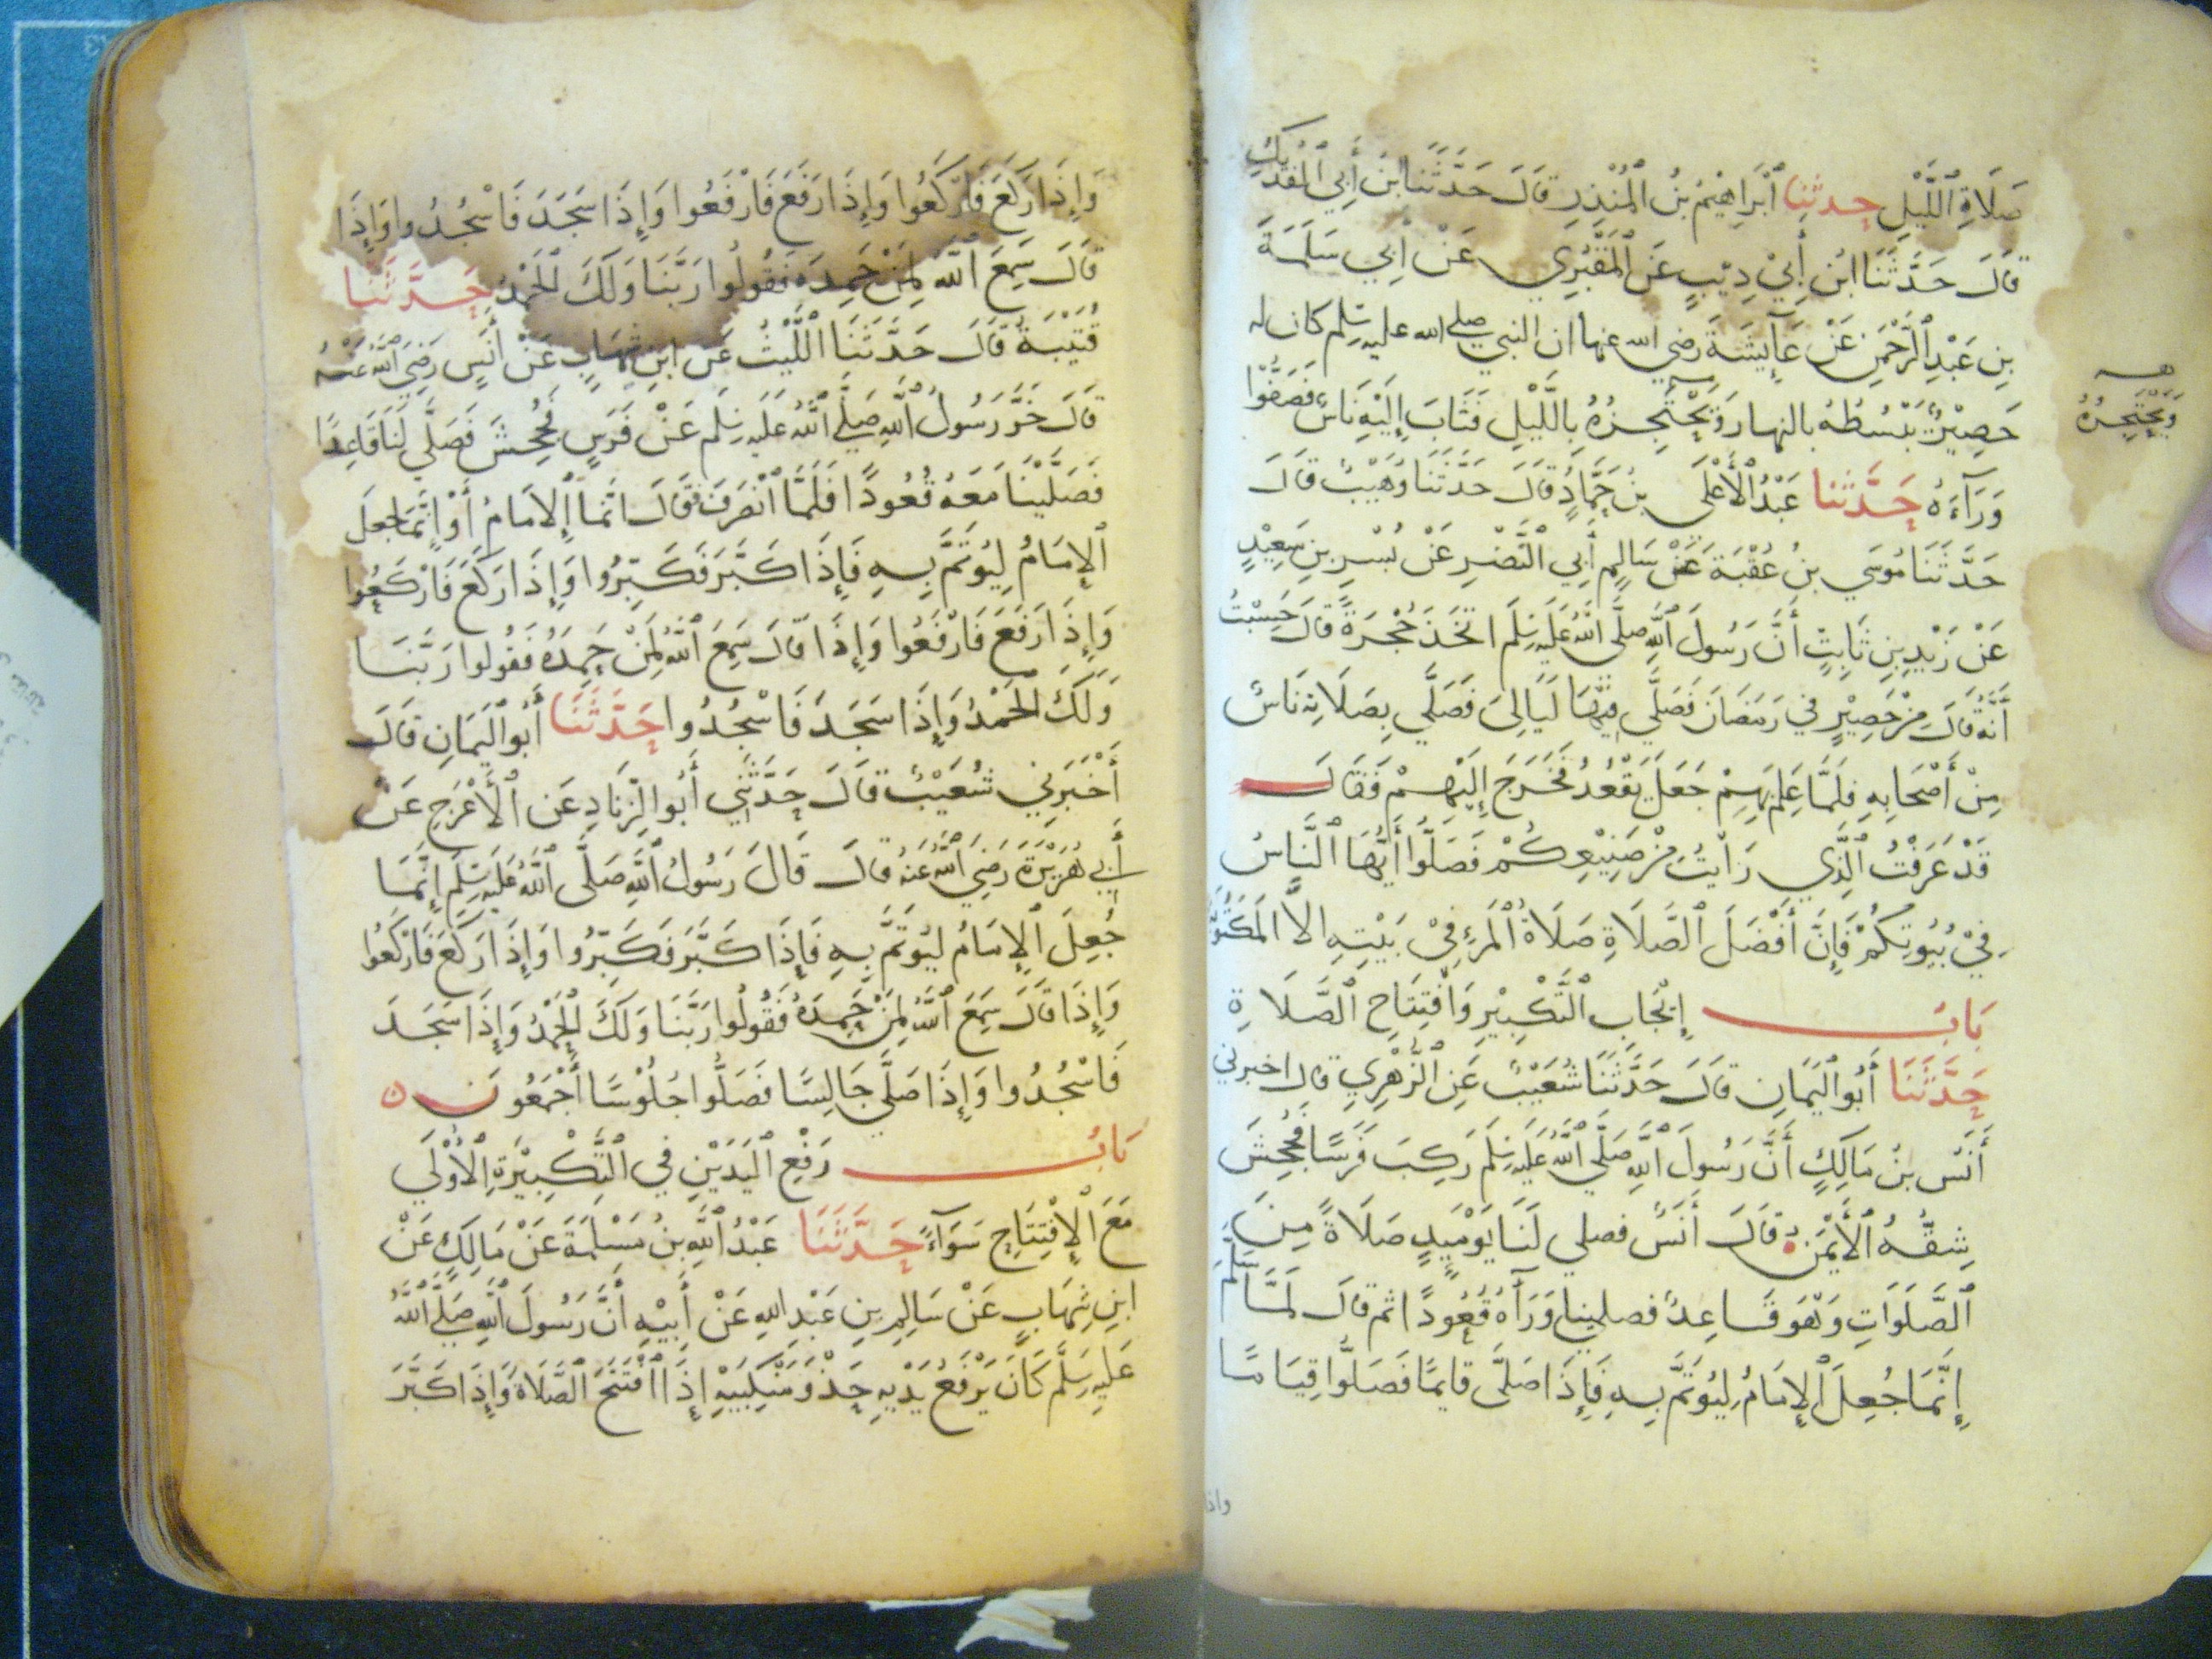 صَلَاةِ اللَّيْلِ حدثنا اِبْرَاهِيْمُ بنُ الْمُنْذِرِ قَالَ حَدَّثَنَا ابنُ أَبِي الْفُدَيْكِ
قَالَ حَدَّثَنَا ابْنُ أَبِيْ ذِيْبٍ عَنِ الْمَقْبُرِي عَنْ أَبِي سَلَمَةَ
بنِ عَبْدِ الرَّحْمنِ عَنْ عَآيِشَةَ رضي الله عنها ان النبي صلى الله عليه وسلم كان له
حَصِيْرٌ يَبْسُطُهُ بالنهار وَيَحْتَجِزُهُ بِاللَّيْلِ فَثَابَ إِلَيْهِ نَاسٌ فَصَفُّوْا
وَيَحْتَجِرُهُ
وَرَآءَهُ حَدَّثَنا عَبْدُ الْأَعْلَى بنُ حَمَّادٍ قَالَ حَدَّثَنَا وُهَيْبٌ قَالَ
حَدَّثَنَا مُوسَي بنُ عُقْبَةَ عَنْ سَالِمٍ أَبِي النَّضْرِ عَنْ بُسْرِ بنِ سَعِيْدٍ
عَنْ زَيْدِ بنِ ثَابِتٍ أَنَّ رَسُولَ اللَّهِ صلى اللَّهُ عَلَيْهِ وسلم اتَّخَذَ حُجْرَةً قَالَ حَسِبْتُ
أَنَّهُ قَالَ مِنْ حَصِيْرٍ فِي رَمَضَانَ فَصَلَّي فِيْهَا لَيَالِيَ فَصَلَّي بِصَلَاتِهِ نَاسٌ
مِنْ أَصْحَابِهِ فَلَمَّا عَلِمَ بِهِمْ جَعَلَ يَقْعُدُ فَخَرَجَ إِلَيْهِمْ فَقَالَ
قَدْ عَرَفْتُ الَّذِي رَاَيْتُ مِنْ صَنِيْعِكُمْ فَصَلُّوا أَيُّهَا النَّاسُ
فِيْ بُيُوتِكُمْ فَإِنَّ أَفْضَلَ الصَّلَاةِ صَلَاةُ الْمَرْءِ فِيْ بَيْتِهِ الاَّ الْمَكْتُوبَةَ
بَابُ إِيْجَابِ التَّكْبِيْرِ وَافْتِتَاحِ الصَّلَاةِ
حَدَّثَنَا أَبُو الْيَمَانِ قَالَ حَدَّثَنَا شُعَيْبٌ عَنِ الزُّهْرِي قال اخبرني
أَنَسُ بنُ مَالِكٍ أَنَّ رَسُولَ اللَّهِ صَلَّي اللَّهُ عَلَيْهِ وسلم رَكِبَ فَرَسًا فَجُحِشَ
شِقُّهُ الْأَيْمَنُ قَالَ أَنَسٌ فصلي لَنَا يَوْمَيِذٍ صَلَاةً مِنَ
الصَّلَوَاتِ وَهْوَ قَاعِدٌ فصلينا وَرَآءَهُ قُعُودًا ثم قال لَمَّا سَلَّمَ
إِنَّمَا جُعِلَ الْإِمَامُ لِيُؤتَمَّ بِهِ فَإِذَا صَلَّى قايمًا فَصَلُّوا قِيَامًا
واذا
وَإِذَا رَكَعَ فَارْكَعُوا وَإِذَا رَفَعَ فَارْفَعُوا وَإِذَا سَجَدَ فَاسْجُدُوا وَإِذَا
قَالَ سَمِعَ اللَّهُ لِمَنْ حَمِدَهُ فَقُولُوا رَبَّنَا وَلَكَ الْحَمْدُ حَدَّثَنَا
قُتَيْبَةُ قَالَ حَدَّثَنَا اللَّيْثُ عَنِ ابنِ شِهَابٍ عَنْ أَنَسٍ رَضِيَ اللَّهُ عَنْهُ
قَالَ خَرَّ رَسُولُ اللَّهِ صَلَّي اللَّهُ عَلَيْهِ وسلم عَنْ فَرَسٍ فَجُحِشَ فَصَلَّي لَنَا قَاعِدًا
فَصَلَّيْنَا مَعَهُ قُعُودًا فَلَمَّا انْصَرَفَ فَقَالَ انَّمَا الْإِمَامُ أَوْ إِنَّمَا جُعِلَ
الْإِمَامُ لِيُؤتَمَّ بِهِ فَإِذَا كَبَّرَ فَكَبِّرُوا وَإِذَا رَكَعَ فَارْكَعُوا
وَإِذَا رَفَعَ فَارْفَعُوا وَإِذَا قَالَ سَمِعَ اللَّهُ لِمَنْ حَمِدَهُ فَقُولُوا رَبَّنَا
وَلَكَ الْحَمْدُ وَإِذَا سَجَدَ فَاسْجُدُوا حَدَّثَنَا أَبُو الْيَمَانِ قَالَ
أَخْبَرَنِي شُعَيْبٌ قَالَ حَدَّثَنِي أَبُو الزِّنَادِ عَنِ الْأَعْرَجِ عَنْ
أَبِي هُرَيْرَةَ رَضِيَ اللَّهُ عَنْهُ قَالَ قَالَ رَسُولُ اللَّهِ صَلَّى اللَّهُ عَلَيْهِ وسلم إِنَّمَا
جُعِلَ الْإِمَامُ لِيُؤتَمَّ بِهِ فَإِذَا كَبَّرَ فَكَبِّرُوا وَإِذَا رَكَعَ فَارْكَعُوا
وَإِذَا قَالَ سَمِعَ اللَّهُ لِمَنْ حَمِدَهُ فَقُولُوا رَبَّنَا وَلَكَ الْحَمْدُ وَإِذَا سَجَدَ
فَاسْجُدُوا وَإِذَا صَلَّي جَالِسًا فَصَلُّوا جُلُوْسًا أَجْمَعُونَ
بَابُ رَفْعِ الْيَدَيْنِ فِي التَّكْبِيْرَةِ الْأُوْلَي
مَعَ الْإِفْتِتَاحِ سَوَآءً حَدَّثَنَا عَبْدُ اللَّهِ بنُ مَسْلَمَةَ عَنْ مَالِكٍ عَنْ
ابنِ شِهَابٍ عَنْ سَالِمِ بنِ عَبْدِ اللهِ عَنْ أَبِيْهِ أَنَّ رَسُولَ اللَّهِ صَلَّي اللَّهُ
عَلَيْهِ وسلم كَانَ يَرْفَعُ يَدَيْهِ حَذْوَ مَنْكِبَيْهِ إِذَا افْتَتَحَ الصَّلَاةَ وَإِذَا كَبَّرَ